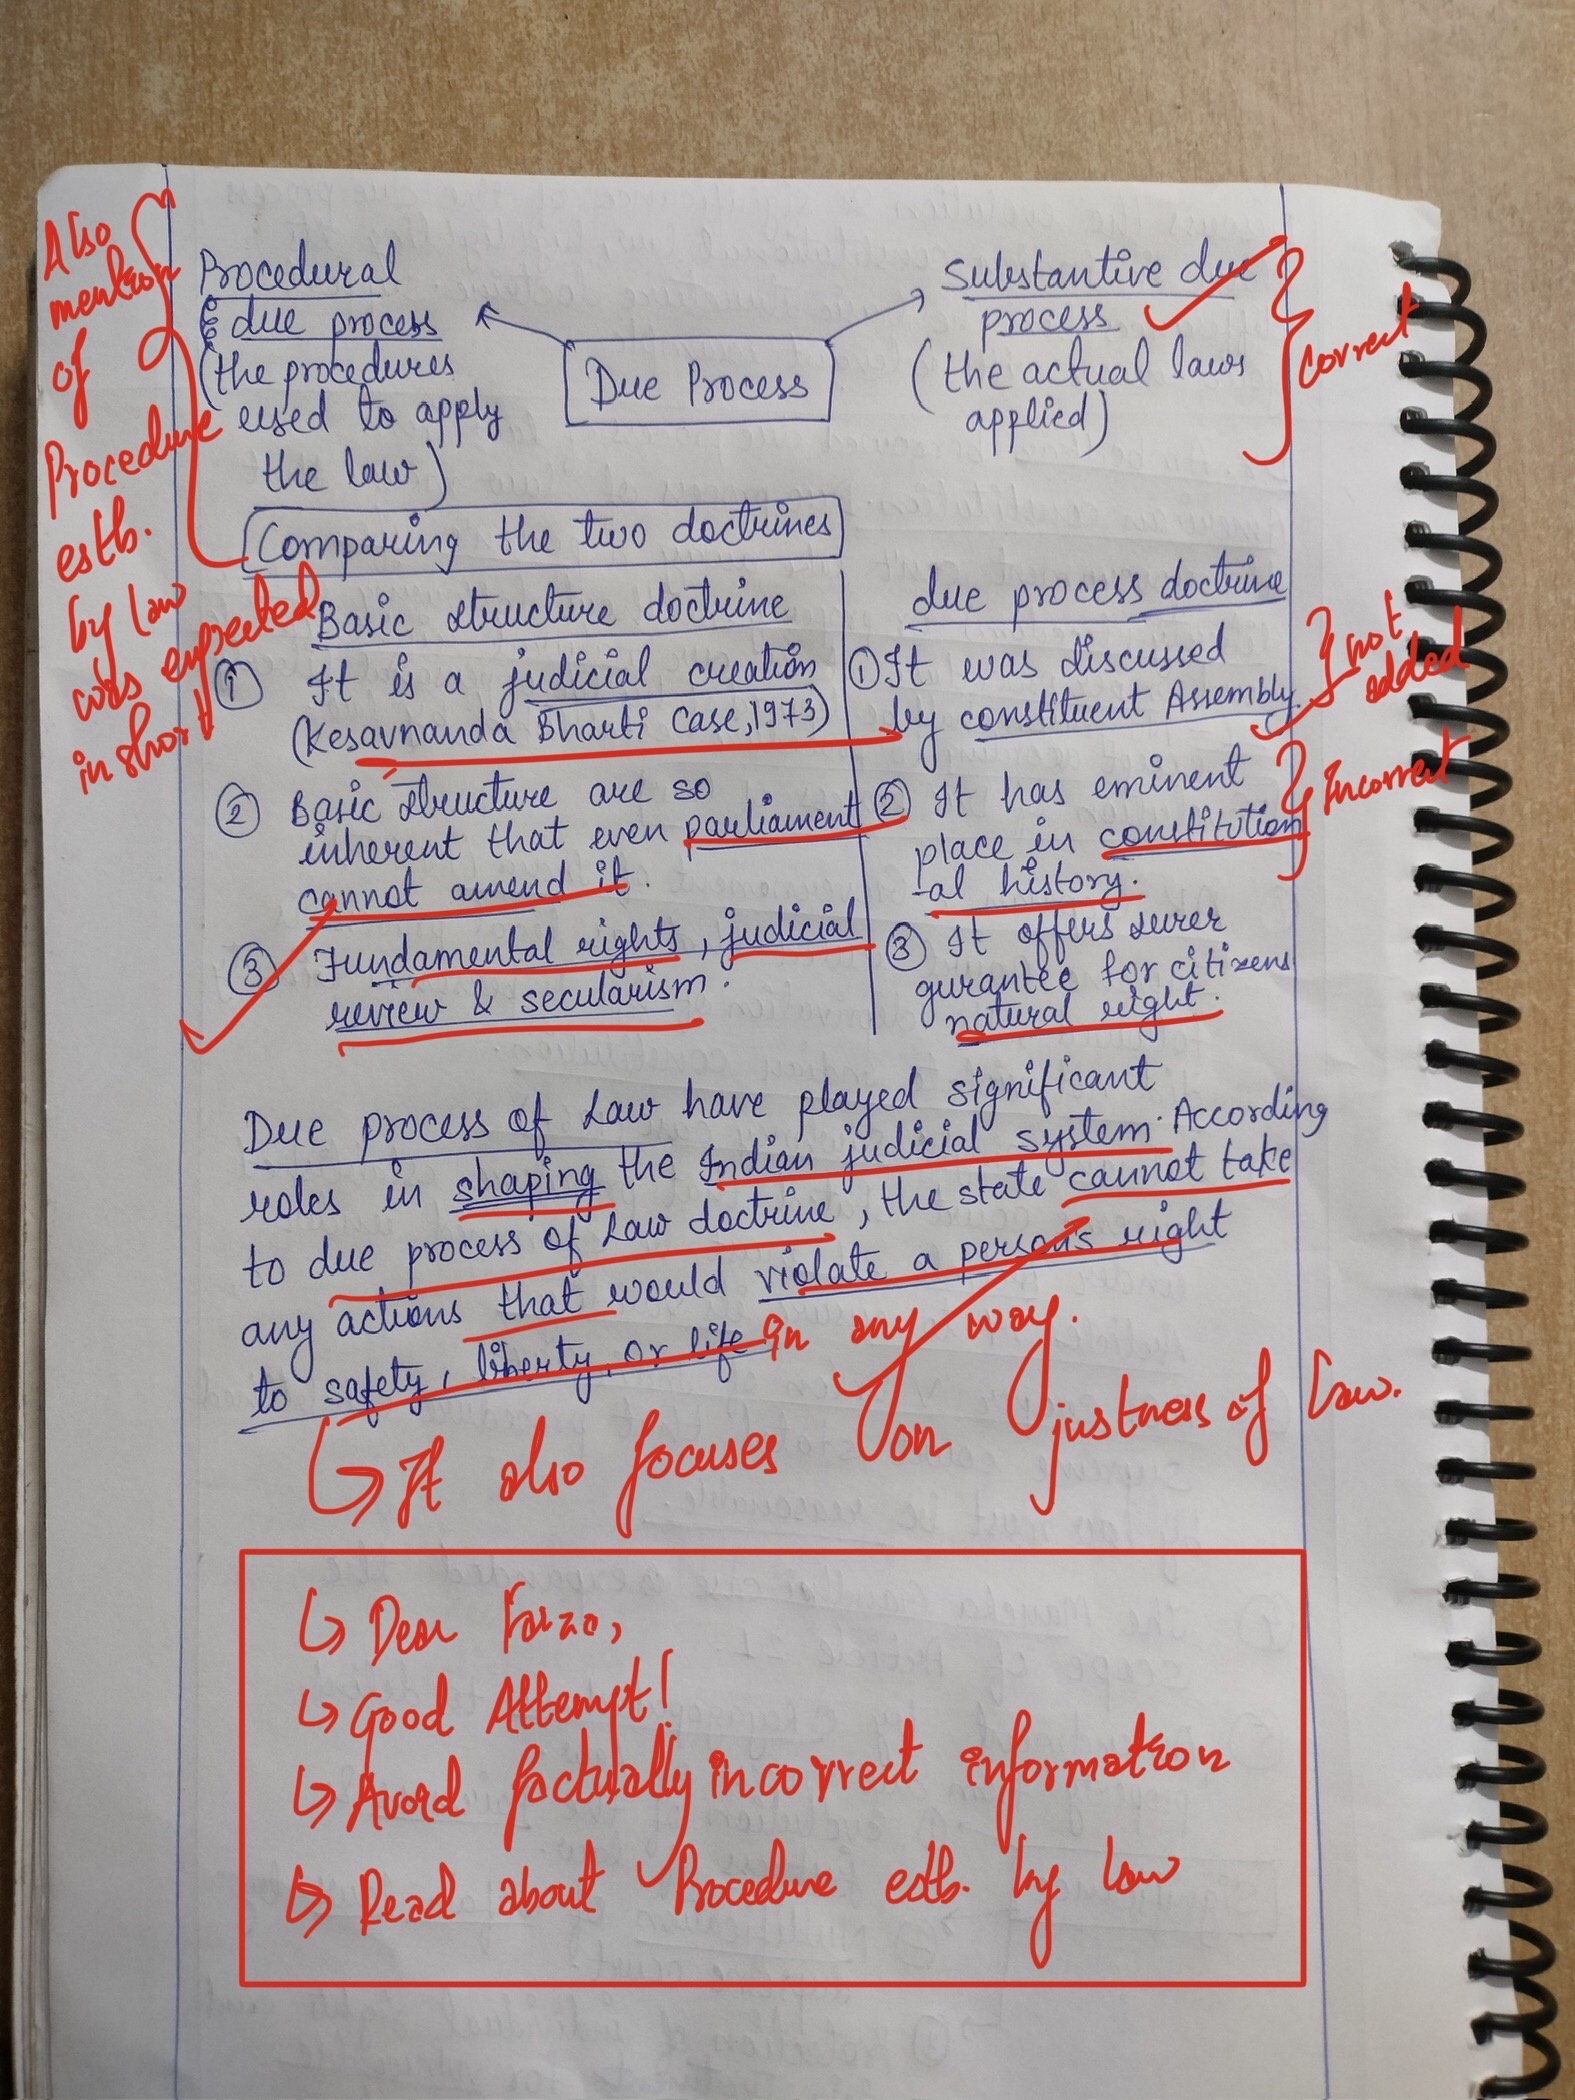 Also
mention
of
Procedure
estb.
by law
was expected
in short
Procedural
due process
(the procedures
used to apply
the law)
Due Process
Substantive due
process
(the actual laws
applied)
correct
Comparing the two doctrines
Basic structure doctrine
① It is a judicial creation
(Kesavnanda Bharti Case, 1973)
② Basic structure are so
inherent that even parliament
cannot amend it.
③ Fundamental rights, judicial
review & secularism.
due process doctrine
① It was discussed
by constituent Assembly.
not
added
② It has eminent
place in constitution
-al history.
Incorrect
③ It offers surer
gurantee for citizens
natural right.
Due process of Law have played significant
roles in shaping the Indian judicial system. According
to due process of Law doctrine, the state cannot take
any actions that would violate a person's right
to safety, liberty, or life in any way.
↳ It also focuses on justness of law.
↳ Dear
↳ Good Attempt!
↳ Avoid factually incorrect information
↳ Read about Procedure estb. by law